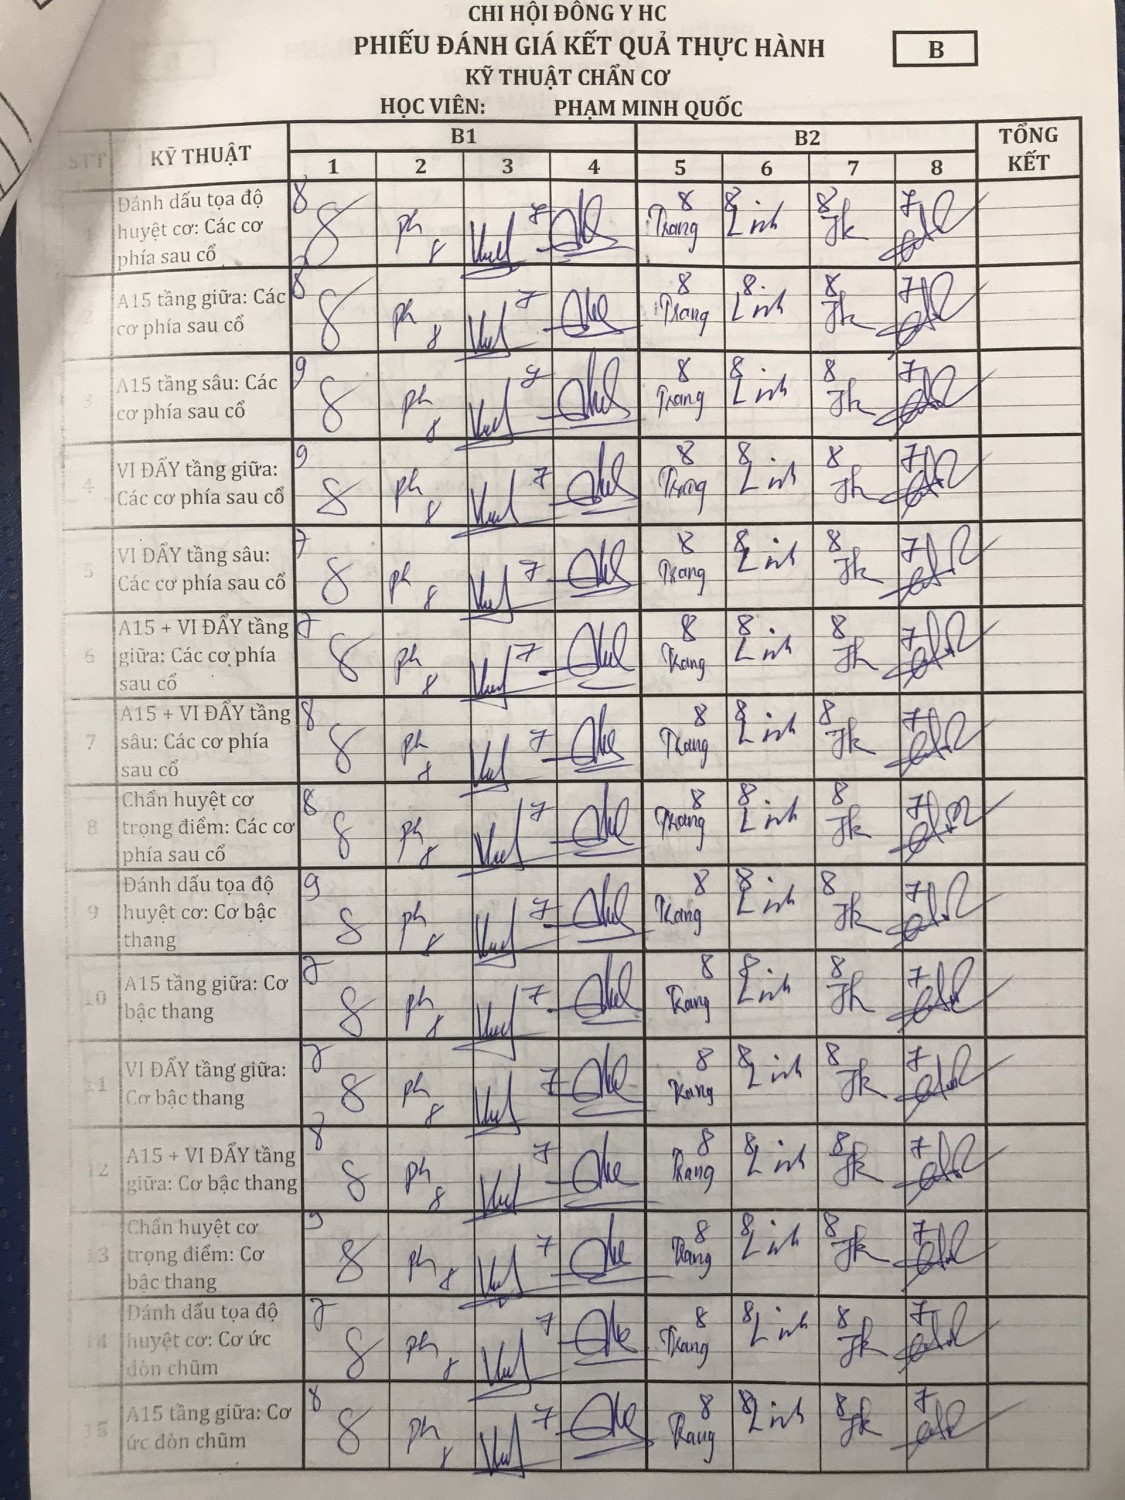 CHI HỘI ĐÔNG Y HC
PHIẾU ĐÁNH GIÁ KẾT QUẢ THỰC HÀNH
B
KỸ THUẬT CHẨN CƠ
HỌC VIÊN: PHẠM MINH QUỐC
STT KỸ THUẬT B1 B2 TỔNG KẾT
1 2 3 4 5 6 7 8
Đánh dấu tọa độ
huyệt cơ: Các cơ
phía sau cổ
8 8 ph 8 7 8 Trang 8 Linh 8 7
2 A15 tầng giữa: Các
cơ phía sau cổ
8 8 ph 8 7 8 Trang 8 Linh 8 7
3 A15 tầng sâu: Các
cơ phía sau cổ
9 8 ph 8 8 Trang 8 Linh 8 7
4 VI ĐẨY tầng giữa:
Các cơ phía sau cổ
9 8 ph 8 7 8 Trang 8 Linh 8 7
5 VI ĐẨY tầng sâu:
Các cơ phía sau cổ
7 8 ph 8 7 8 Trang 8 Linh 8 7
6 A15 + VI ĐẨY tầng
giữa: Các cơ phía
sau cổ
7 8 ph 8 7 8 Trang 8 Linh 8 7
7 A15 + VI ĐẨY tầng
sâu: Các cơ phía
sau cổ
8 8 ph 8 7 8 Trang 8 Linh 8 7
8 Chẩn huyệt cơ
trọng điểm: Các cơ
phía sau cổ
8 8 ph 8 7 8 Trang 8 Linh 8 7
9 Đánh dấu tọa độ
huyệt cơ: Cơ bậc
thang
9 8 ph 8 7 8 Trang 8 Linh 8 7
10 A15 tầng giữa: Cơ
bậc thang
7 8 ph 8 7 8 Trang 8 Linh 8 7
11 VI ĐẨY tầng giữa:
Cơ bậc thang
7 8 ph 8 7 8 Trang 8 Linh 8 7
12 A15 + VI ĐẨY tầng
giữa: Cơ bậc thang
8 8 ph 8 7 8 Trang 8 Linh 8 7
13 Chẩn huyệt cơ
trọng điểm: Cơ
bậc thang
9 8 ph 8 7 8 Trang 8 Linh 8 7
14 Đánh dấu tọa độ
huyệt cơ: Cơ ức
đòn chũm
7 8 ph 8 7 8 Trang 8 Linh 8 7
15 A15 tầng giữa: Cơ
ức đòn chũm
8 8 ph 8 7 8 Trang 8 Linh 8 7